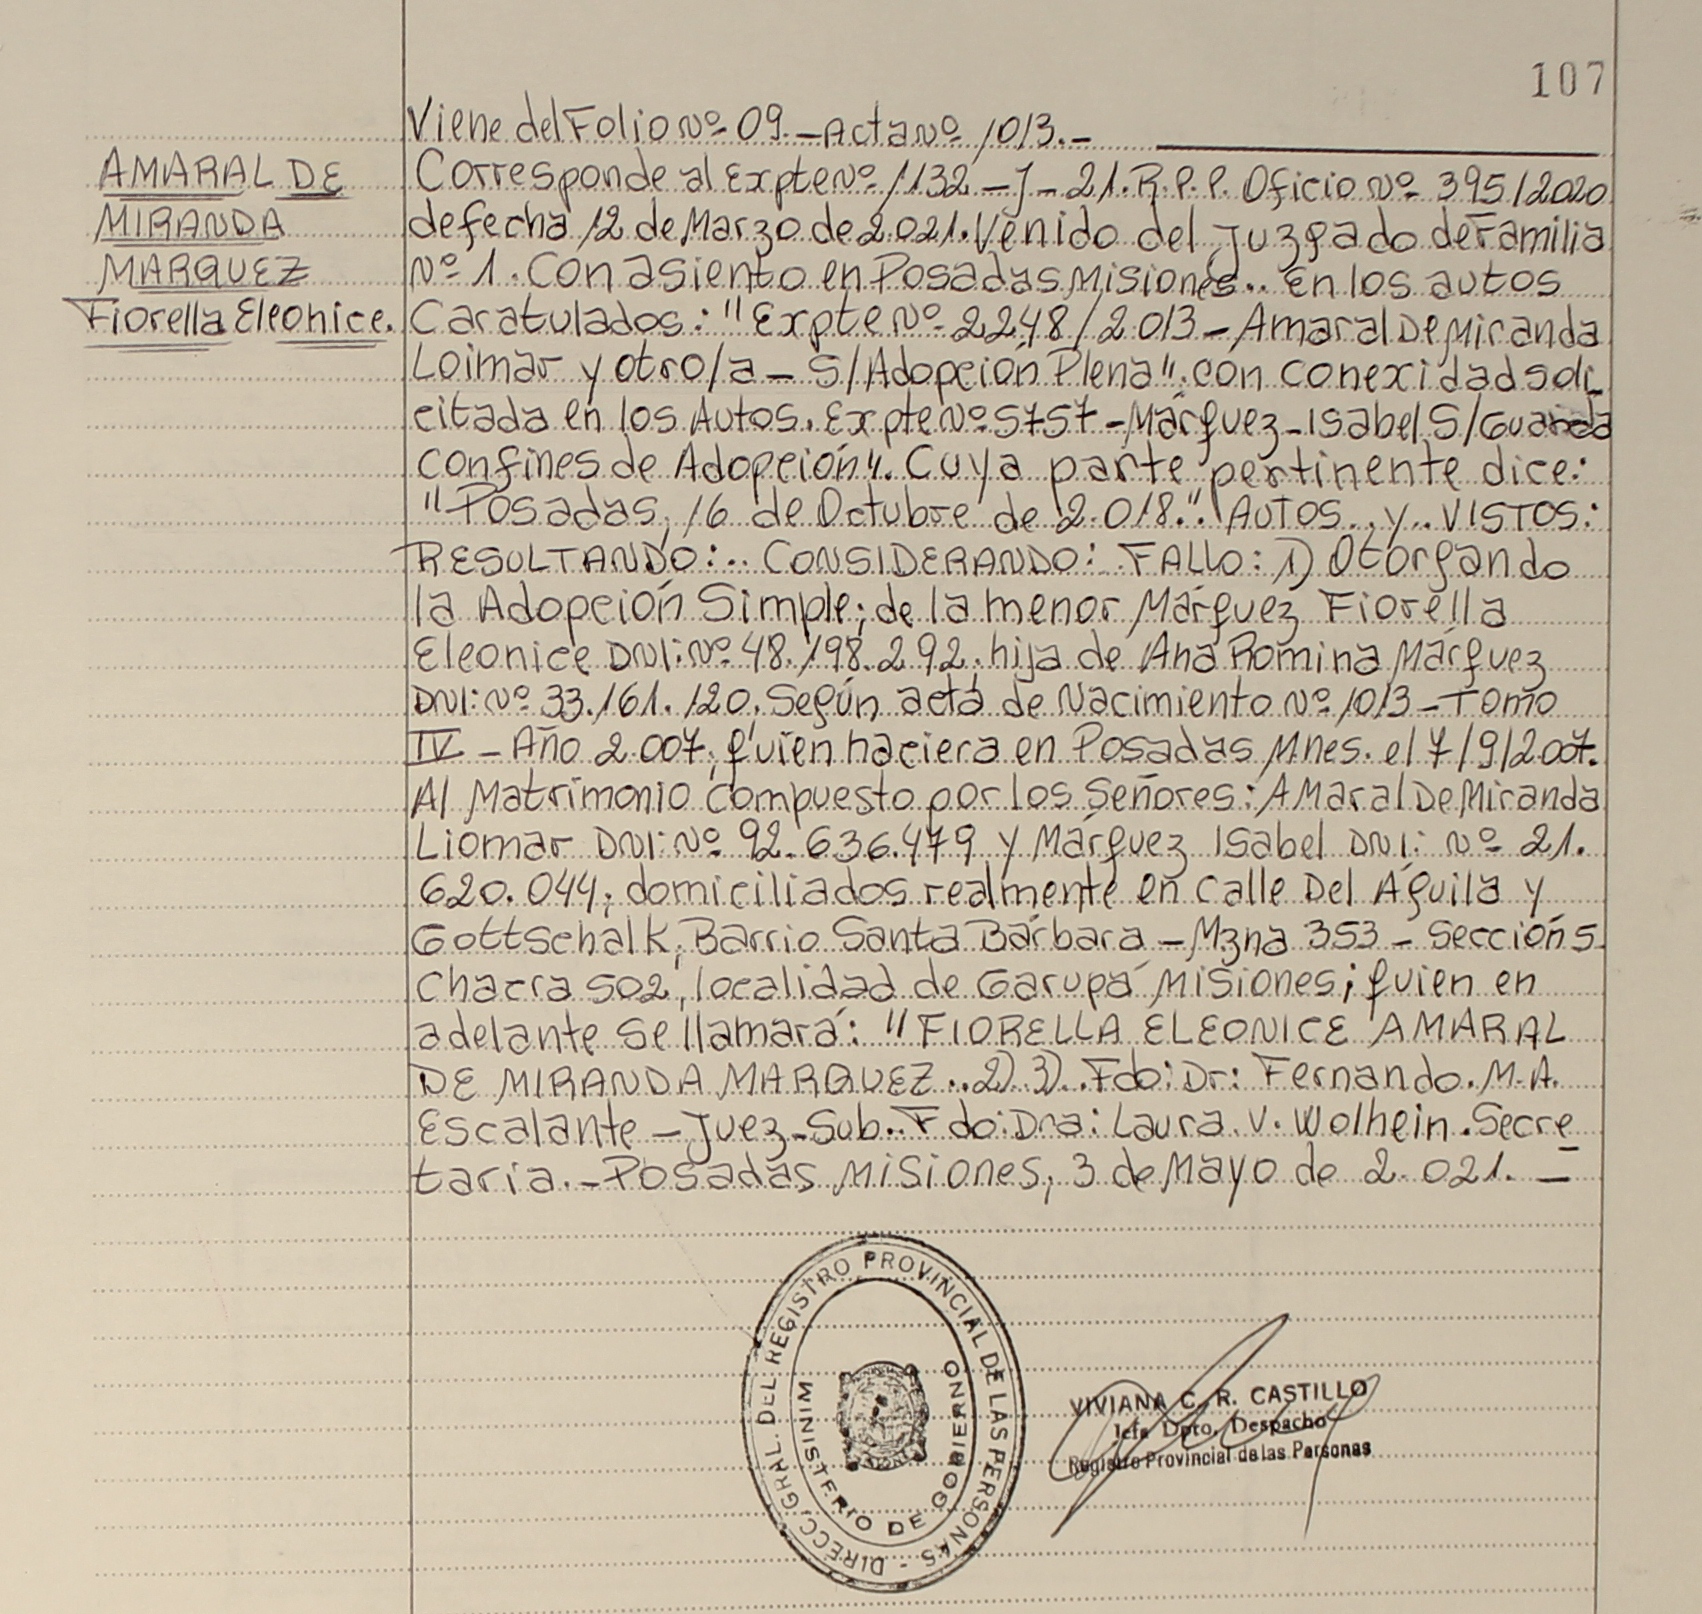 107
Viene del Folio Nº 09.-Acta Nº 1013.-
AMARAL DE
MIRANDA
MARQUEZ
Fiorella Eleonice.
Corresponde al Expte Nº 1132-J-21.R.P.P. Oficio Nº 395/2020
de fecha 12 de Marzo de 2.021. Venido del Juzgado de Familia
Nº 1. Con asiento en Posadas Misiones.. En los autos
Caratulados: "Expte Nº 2248/2.013-Amaral De Miranda
Loimar y otro/a-S/Adopción Plena". con conexidad soli
citada en los Autos. Expte Nº 5757-Márquez-Isabel S/Guarda
con fines de Adopción". Cuya parte pertinente dice:
"Posadas, 16 de Octubre de 2.018.". AUTOS..y..VISTOS:
RESULTANDO:.. CONSIDERANDO: FALLO: 1) Otorgando
la Adopción Simple; de la menor Márquez Fiorella
Eleonice DNI: Nº 48.198.292. hija de Ana Romina Márquez
DNI: Nº 33.161.120. Según acta de Nacimiento Nº 1013-Tomo
IV-Año 2.007; quien naciera en Posadas Mnes. el 7/9/2.007.
Al Matrimonio compuesto por los Señores: Amaral De Miranda
Liomar DNI: Nº 92.636.479 y Márquez Isabel DNI: Nº 21.
620.044; domiciliados realmente en Calle Del Águila y
Gottschalk, Barrio Santa Bárbara-Mzna 353-Sección 5
Chacra 502, localidad de Garupá Misiones; quien en
adelante se llamará: "FIORELLA ELEONICE AMARAL
DE MIRANDA MARQUEZ..2) 3)..Fdo: Dr: Fernando.M.A.
Escalante-Juez-Sub..Fdo: Dra: Laura.V.Wolhein.Secre
taria.-Posadas Misiones, 3 de Mayo de 2.021.-
DIRECC. GRAL. DEL REGISTRO PROVINCIAL DE LAS PERSONAS -
MINISTERIO DE GOBIERNO
VIVIANA C. R. CASTILLO
Jefa Dpto. Despacho
Registro Provincial de las Personas